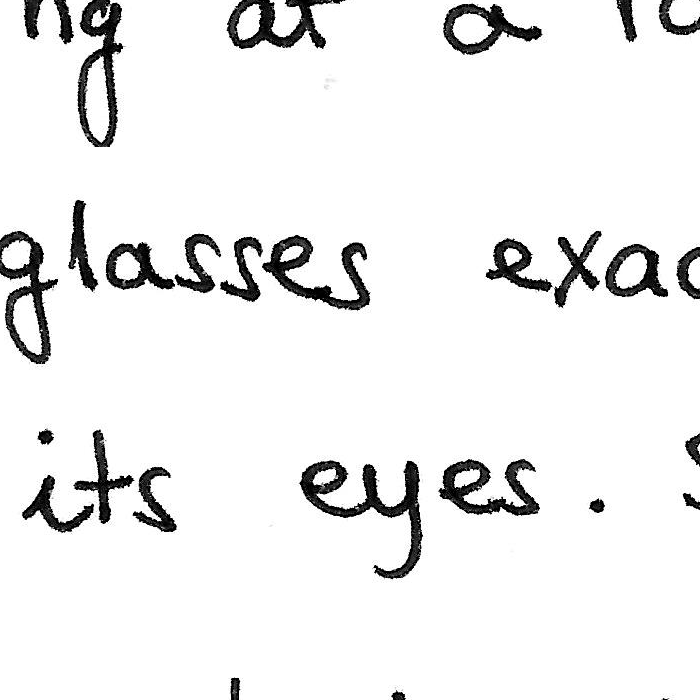 ng at a
glasses exac
its eyes.